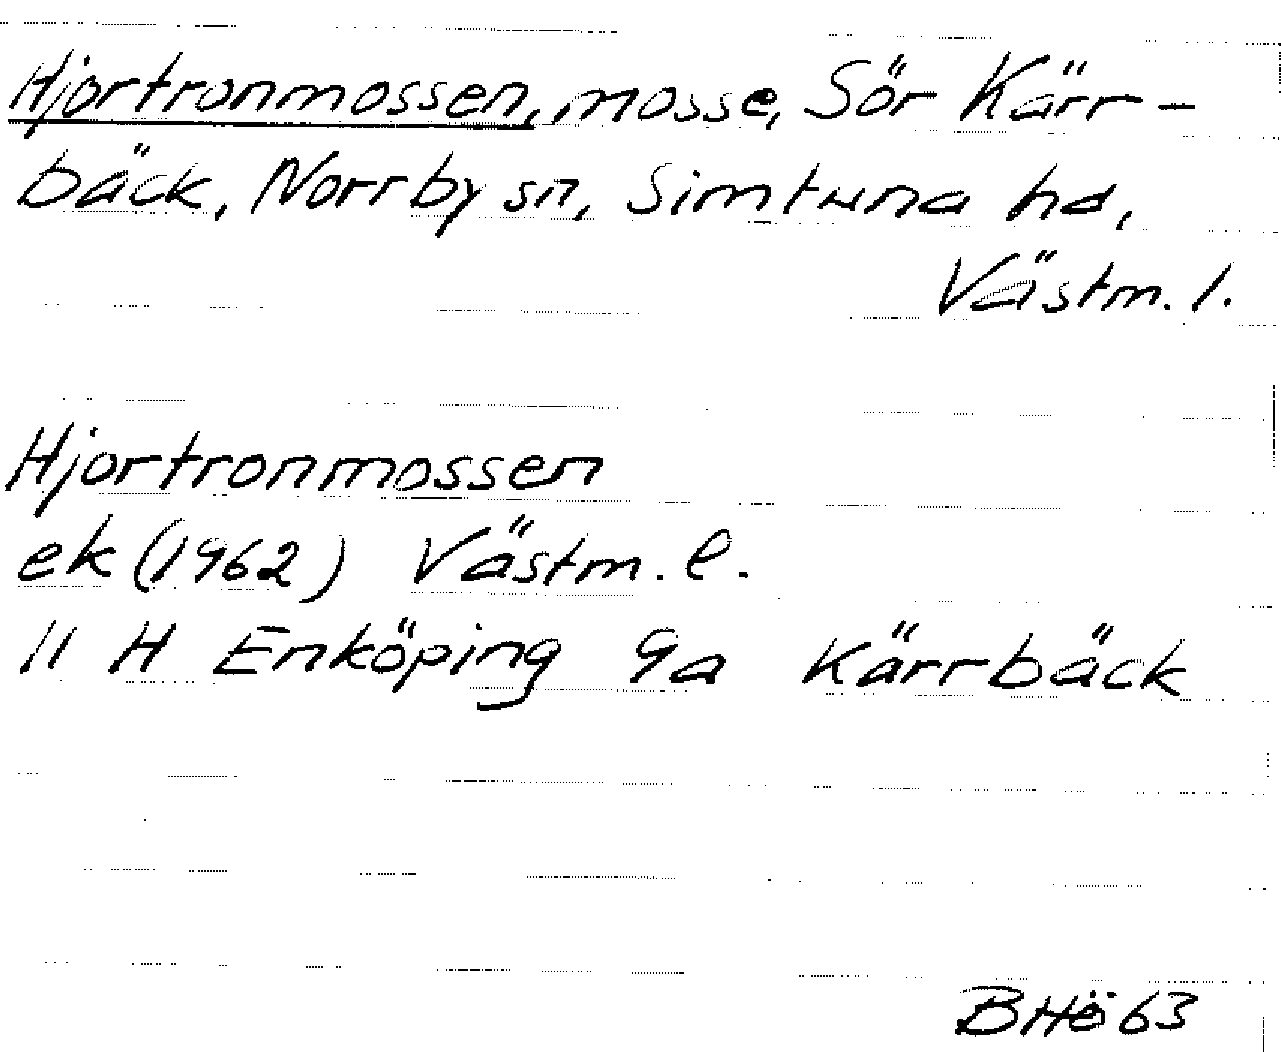 Hjortronmossen, mosse, Sör Kärr-
bäck, Norrby sn, Simtuna hd,
Västm. l.
Hjortronmossen
ek (1962) Västm. l.
11 H Enköping 9a Kärrbäck
BHö 63